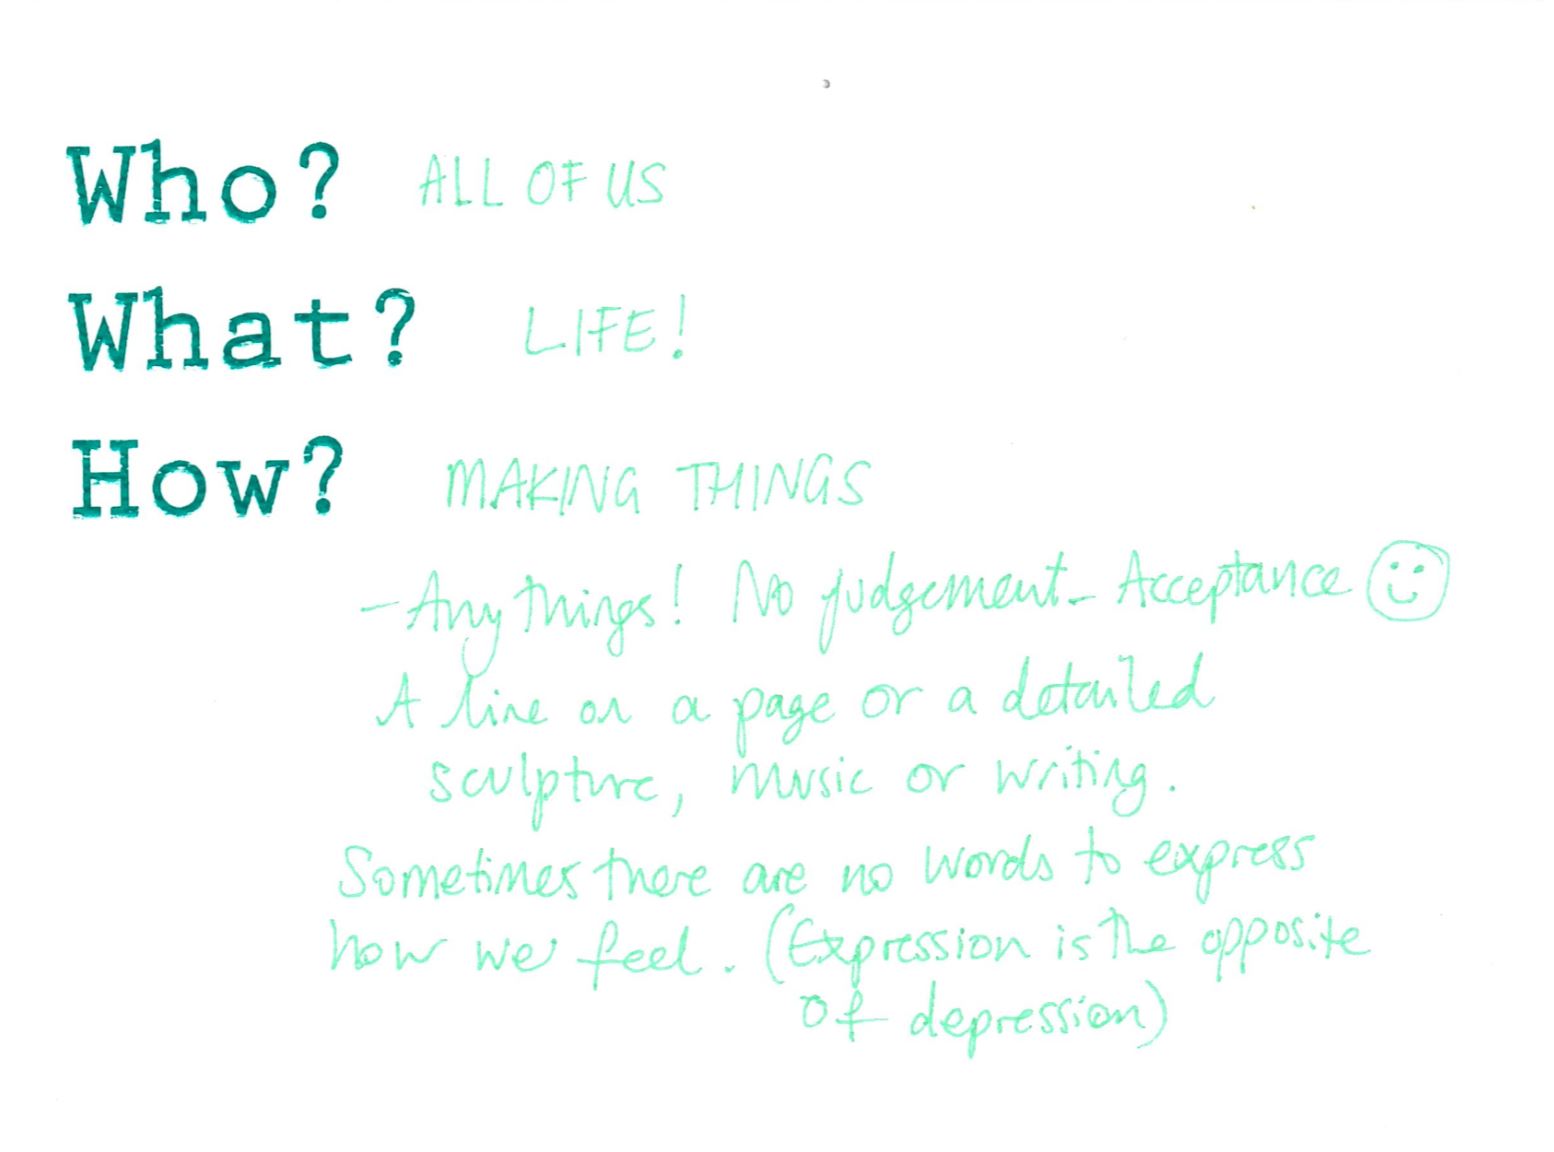 Who? ALL OF US
What? LIFE!
How? MAKING THINGS
- Any things! No judgement - Acceptance
A line on a page or a detailed
sculpture, music or writing.
Sometimes there are no words to express
how we feel. (Expression is the opposite
of depression)